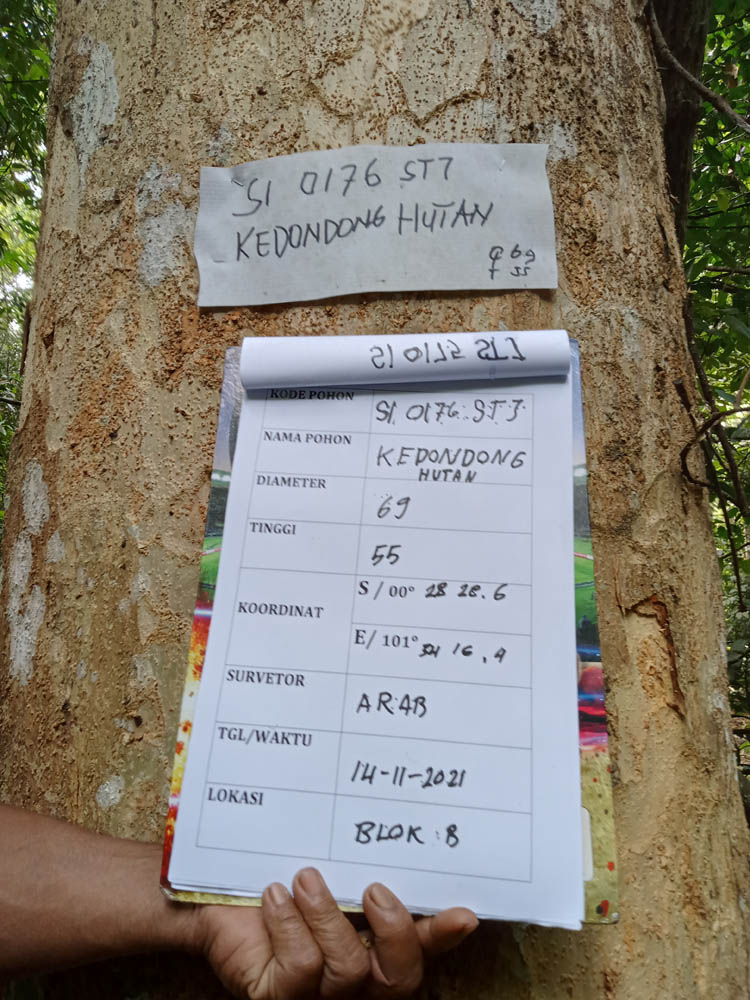 SI 0176 STJ
KEDONDONG HUTAN
69
T 55
SI 0175 STJ
KODE POHON SI. 0176. S.T.J.
NAMA POHON KEDONDONG
HUTAN
DIAMETER 69
TINGGI 55
KOORDINAT
S / 00° 28 28.6
E/ 101° 16.4
SURVETOR ARAB
TGL/WAKTU 14-11-2021
LOKASI BLOK : B